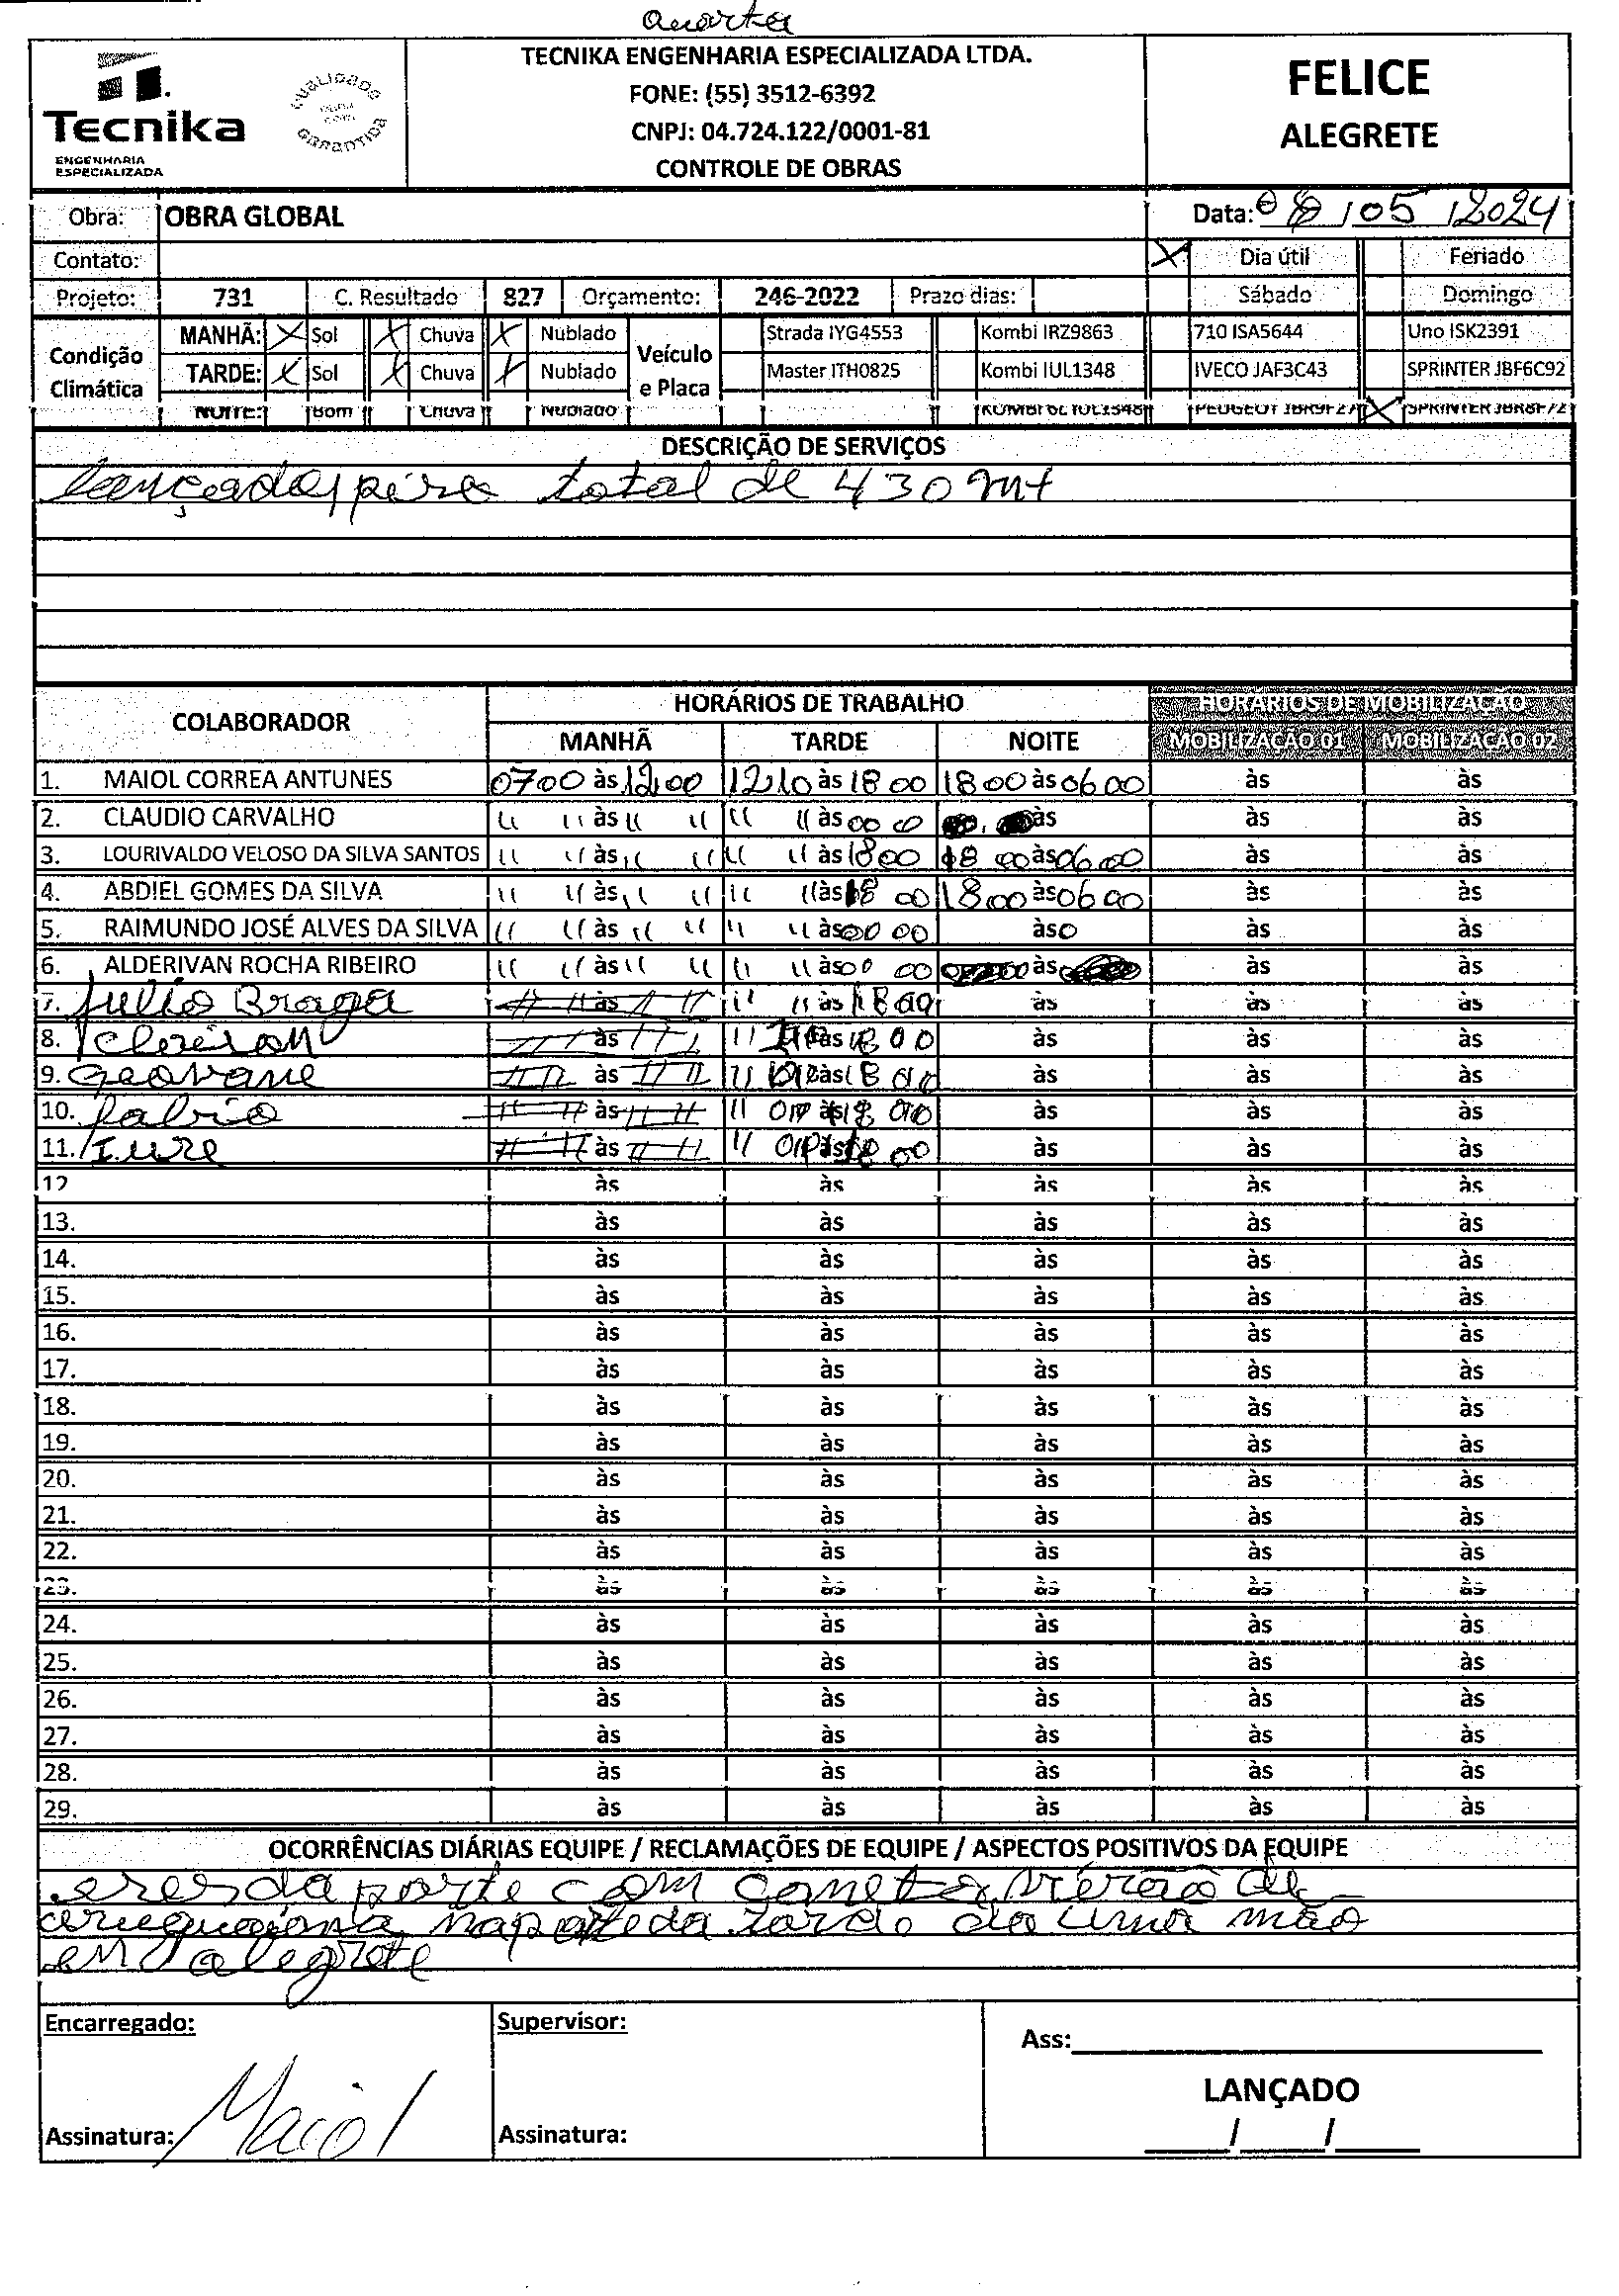 quarta
Tecnika
ENGENHARIA
ESPECIALIZADA
QUALIDADE
GARANTIDA
TECNIKA ENGENHARIA ESPECIALIZADA LTDA.
FONE: (55) 3512-6392
CNPJ: 04.724.122/0001-81
CONTROLE DE OBRAS
FELICE
ALEGRETE
Obra: OBRA GLOBAL Data: 08/05/2024
Contato: X Dia útil Feriado
Projeto: 731 C. Resultado 827 Orçamento: 246-2022 Prazo dias: Sábado Domingo
Condição Climática
MANHÃ: X Sol X Chuva X Nublado
TARDE: X Sol X Chuva X Nublado
NOITE: Bom Chuva Nublado
Veículo e Placa
Strada IYG4553 Kombi IRZ9863 710 ISA5644 Uno ISK2391
Master ITH0825 Kombi IUL1348 IVECO JAF3C43 SPRINTER JBF6C92
KOMBI 6L IUL1348 PEUGEOT JBR9F27 X SPRINTER JBR8F72
DESCRIÇÃO DE SERVIÇOS
total de 430 mt
COLABORADOR HORÁRIOS DE TRABALHO HORÁRIOS DE MOBILIZAÇÃO
MANHÃ TARDE NOITE MOBILIZAÇÃO 01 MOBILIZAÇÃO 02
1. MAIOL CORREA ANTUNES 07 00 às 12 00 12 10 às 18 00 18 00 às 06 00 às às
2. CLAUDIO CARVALHO " " às " " " " às 00 0 às às às
3. LOURIVALDO VELOSO DA SILVA SANTOS " " às " " " " às 18 00 18 00 às 06 00 às às
4. ABDIEL GOMES DA SILVA " " às " " " " às 18 00 18 00 às 06 00 às às
5. RAIMUNDO JOSÉ ALVES DA SILVA " " às " " " " às 00 00 às 0 às às
6. ALDERIVAN ROCHA RIBEIRO " " às " " " " às 00 00 às às às
7. Julio Braga " " às " " " " às 18 00 às às às
8. " às 18 00 às às às
9. Geovane " " às " " " às 18 00 às às às
10. Fabio " " às " " " às 18 00 às às às
11. Iure " " às " " " às 18 00 às às às
12 às às às às às
13. às às às às às
14. às às às às às
15. às às às às às
16. às às às às às
17. às às às às às
18. às às às às às
19. às às às às às
20. às às às às às
21. às às às às às
22. às às às às às
23. às às às às às
24. às às às às às
25. às às às às às
26. às às às às às
27. às às às às às
28. às às às às às
29. às às às às às
OCORRÊNCIAS DIÁRIAS EQUIPE / RECLAMAÇÕES DE EQUIPE / ASPECTOS POSITIVOS DA EQUIPE
com de
uruguaiana na parte da tarde da uma mão
em alegrete
Encarregado: Supervisor: Ass:
LANÇADO
Assinatura: Maiol Assinatura: / /